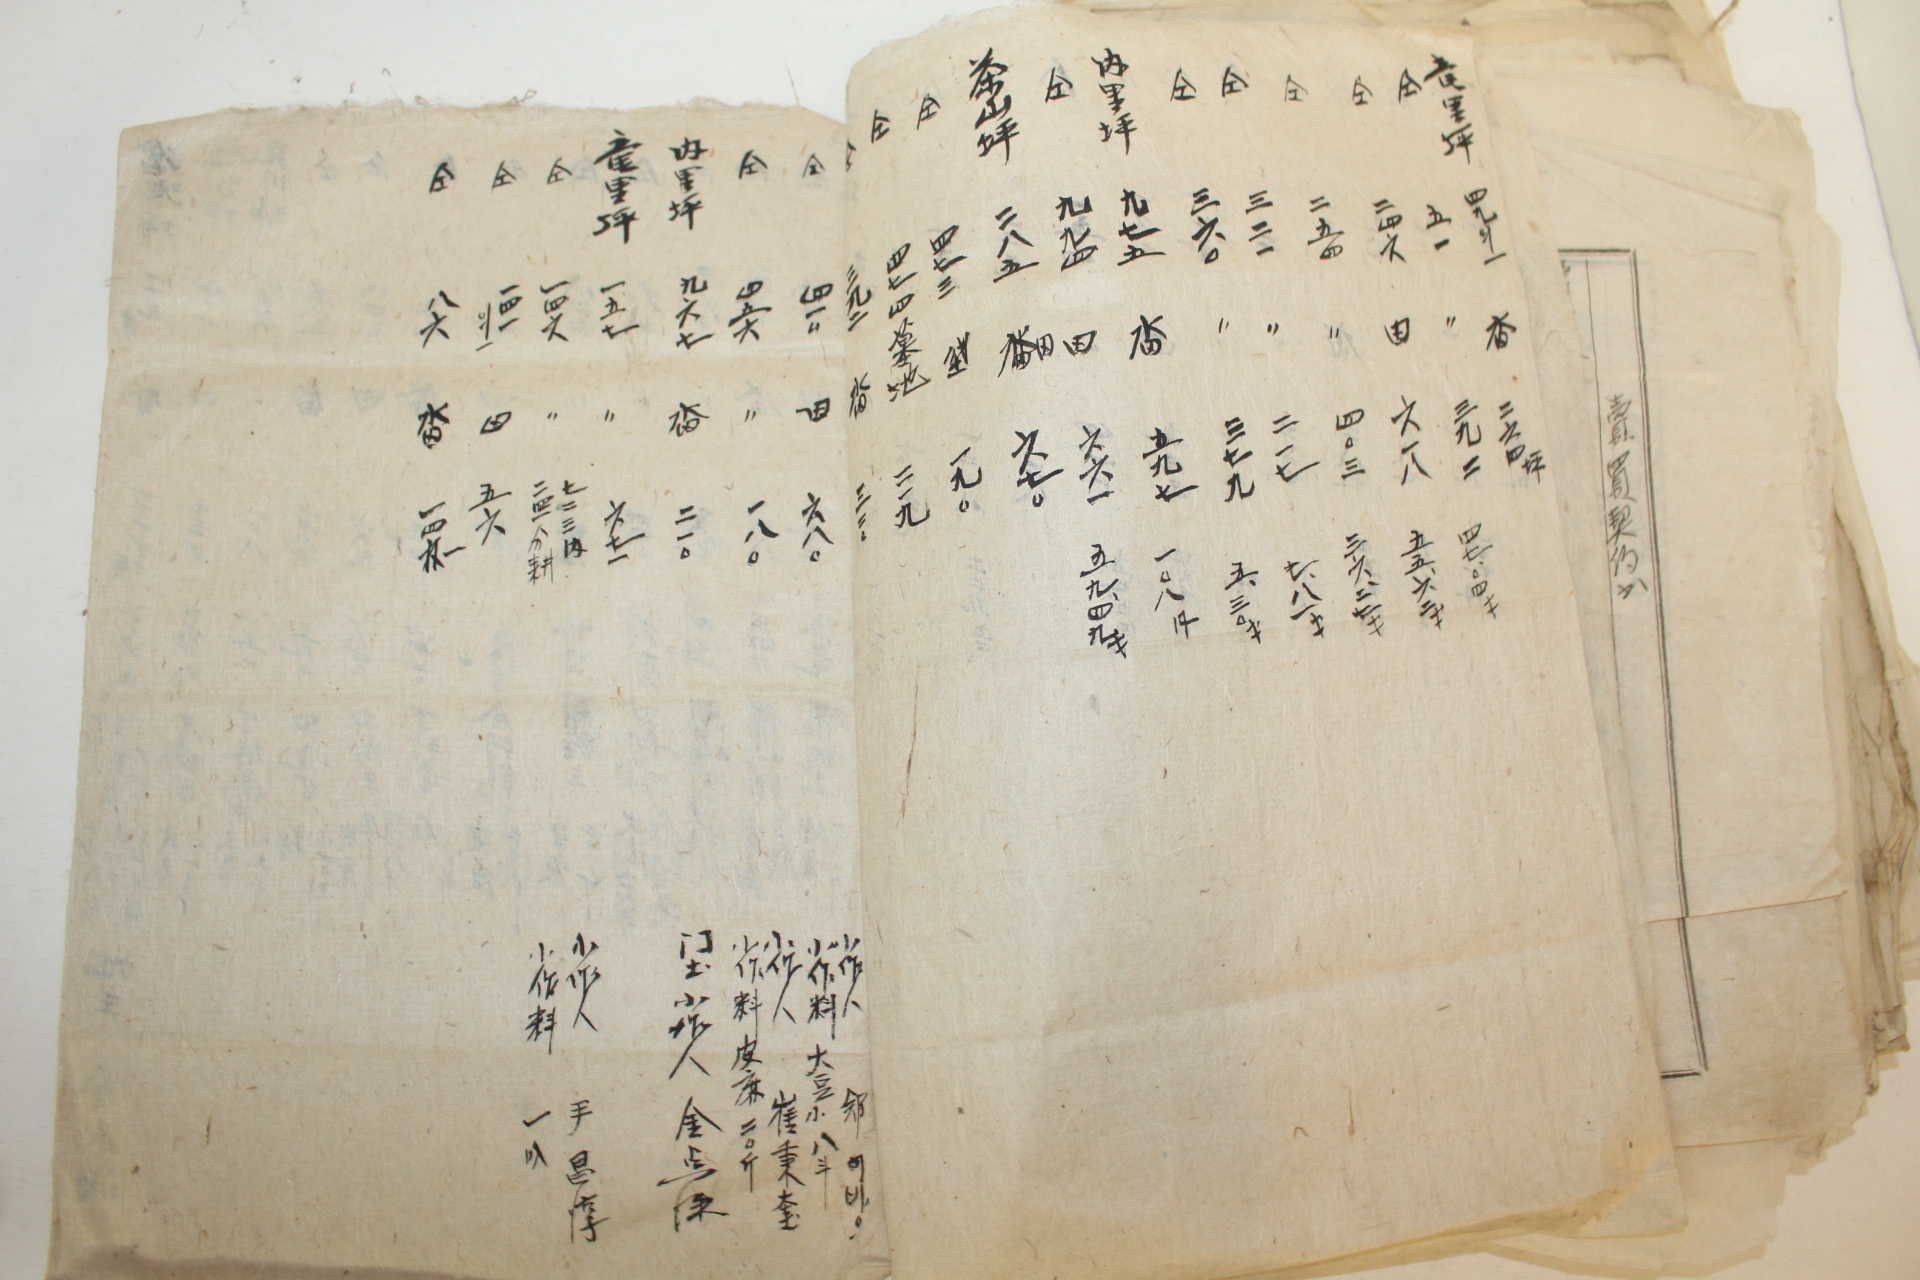 賣買契約
竜里坪 四九ノ一 畓 二六四坪 四七.〇四才
仝 五一 〃 三九二 五五.六二才
仝 二四六 田 六一八 三六.二七才
仝 二五四 〃 四〇三 七.八一才
仝 三二一 〃 二一七 五.三〇才
仝 三六〇 〃 三七九 一〇八
内里坪 九七五 畓 五九七 五九.四九才
仝 九九四 田 六六一
茶山坪 二八五 畓田 六七〇
仝 四七三 垈 一九〇
仝 四七四 墓地 二一九
三九二 畓 三三〇 小作人
仝 四一〃 田 六八〇 小作料 大豆小八斗
仝 四五六 〃 一八〇 小作人 崔秉奎
小作料 皮麻二〇斤
内里坪 九六七 畓 二一〇 门土小作人 金点
竜里坪 一五七 〃 六七一
仝 一四六 〃 七二三内 小作人 昌淳
二四一分耕 小作料 一
仝 一四一ノ一 田 五六
仝 八六 畓